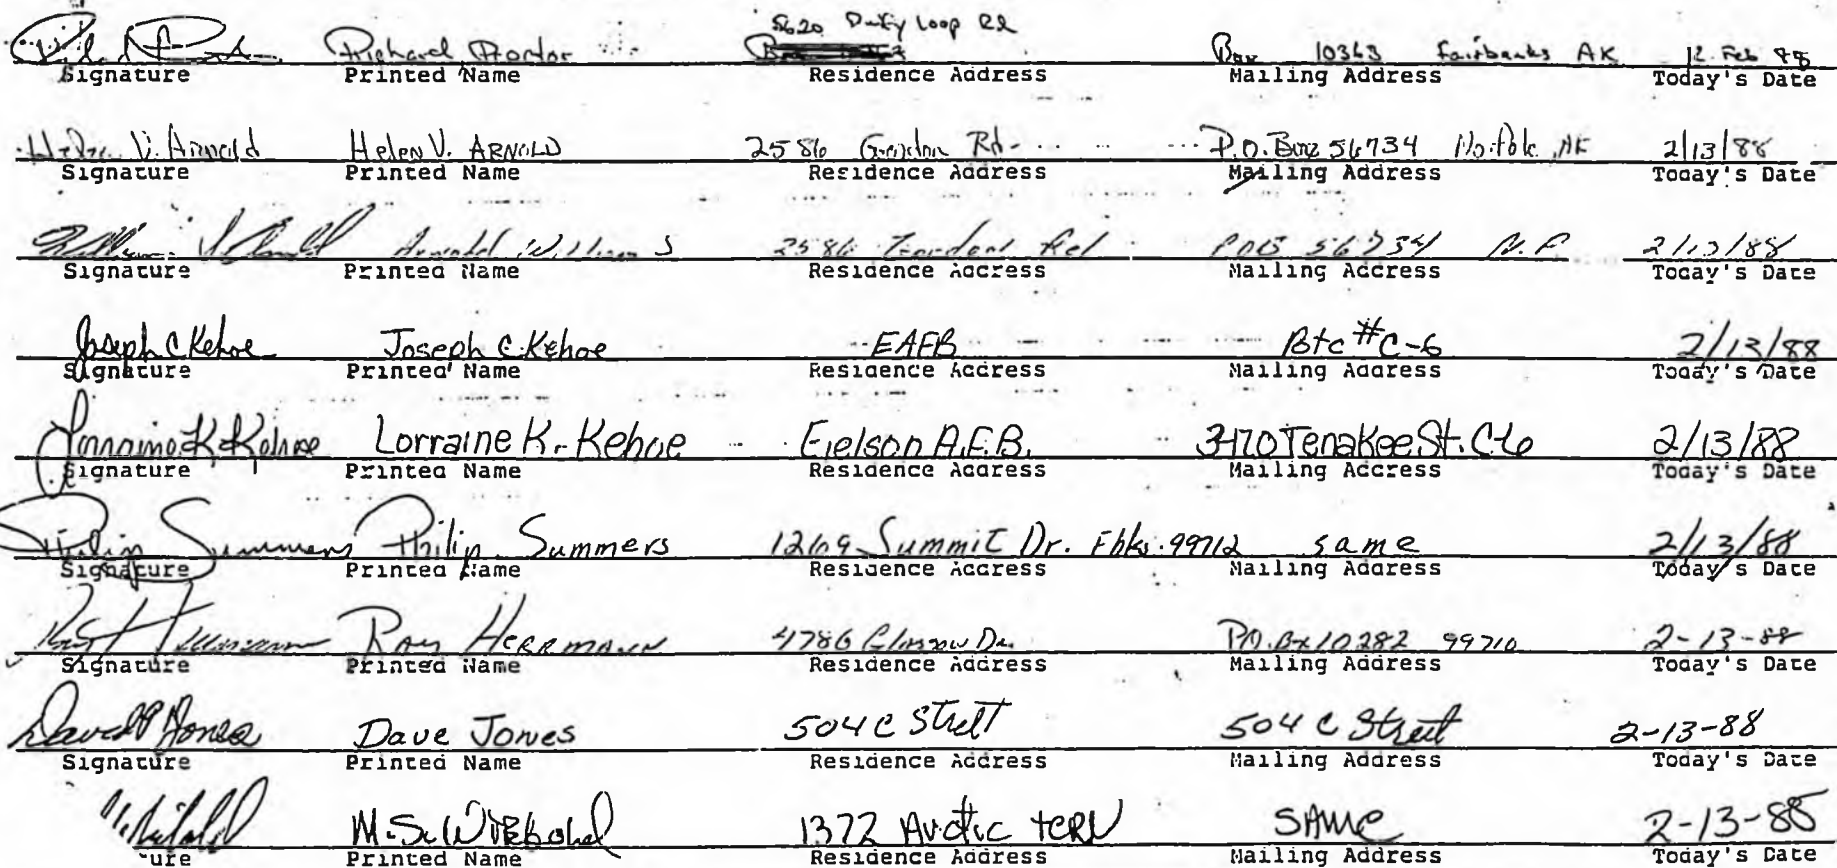 5620 Loop Rd
Richard Proctor Box 10363 Fairbanks AK 12 Feb 88
Signature Printed Name Residence Address Mailing Address Today's Date
Helen V. Arnold Helen V. ARNOLD 2586 Gordon Rd. P.O. Box 56734 No. Pole AK 2/13/88
Signature Printed Name Residence Address Mailing Address Today's Date
Arnold William S 2586 Gordon Rd POB 56734 N.P. 2/13/88
Signature Printed Name Residence Address Mailing Address Today's Date
Joseph C Kehoe Joseph C. Kehoe EAFB #C-6 2/13/88
Signature Printed Name Residence Address Mailing Address Today's Date
Lorraine K Kehoe Lorraine K. Kehoe Eielson A.F.B. 3470 Tenakee St. C6 2/13/88
Signature Printed Name Residence Address Mailing Address Today's Date
Philip Summers Philip Summers 1269 Summit Dr. Fbks. 99712 same 2/13/88
Signature Printed Name Residence Address Mailing Address Today's Date
Ray Herrmann Ray HERRMANN 4786 Glasgow Dr. P.O. Bx 10282 99710 2-13-88
Signature Printed Name Residence Address Mailing Address Today's Date
David Jones Dave Jones 504 C Street 504 C Street 2-13-88
Signature Printed Name Residence Address Mailing Address Today's Date
M.S. 1372 Arctic tern SAME 2-13-88
ure Printed Name Residence Address Mailing Address Today's Date